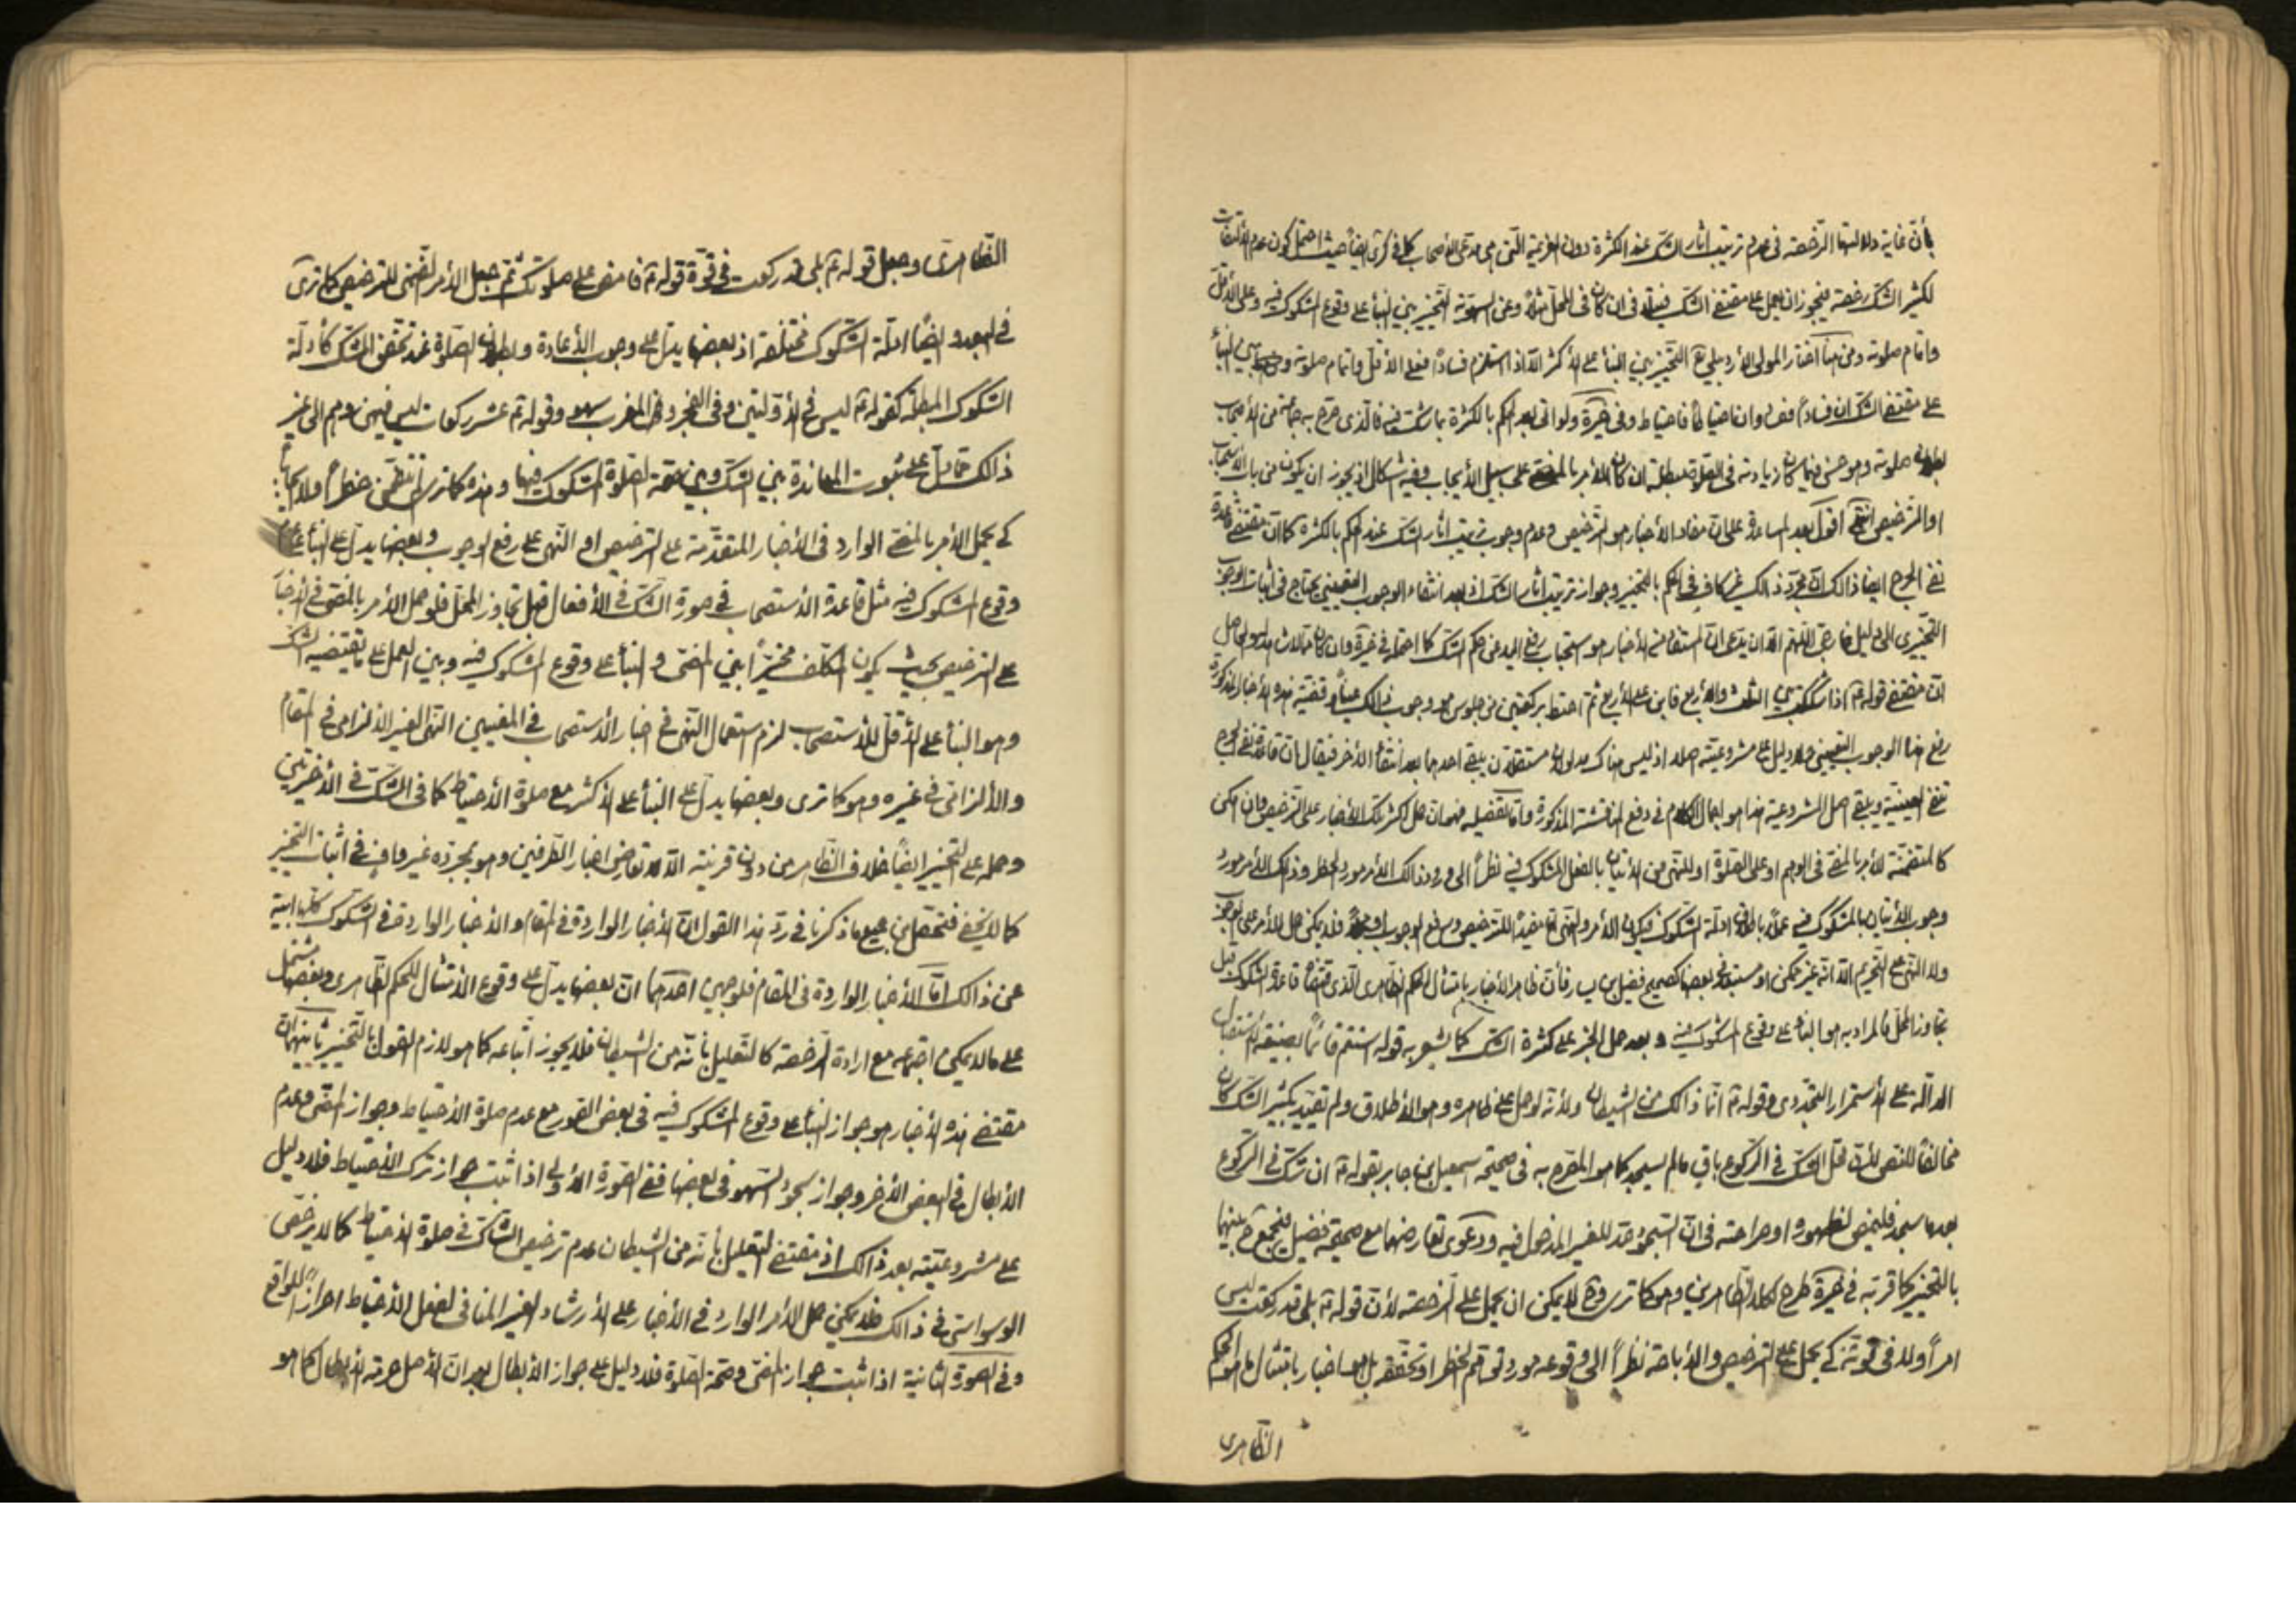 بأن غاية دلالتها الرخصة فى عدم ترتيب اثار الشك عند الكثرة دون العزيمة الّتى هى مدعى الأصحاب كما فى كرى ايضاً حيث احتمل كون عدم الالتفات
لكثير الشك رخصة فيجوز ان يعمل على مقتضى الشك فيتلافى ان كان فى المحل مثلاً وعن التخيير بين البنأ على وقوع المشكوك فيه وعلى الأقل
واتمام صلوته ومن هنا اختار المولى الأردبيلى التخيير بين البنأ على الأكثر الّا اذا استلزم فساداً فعلى الأقل واتمام صلوته وبين البنأ
على مقتضى الشك ان فساداً وان احتياطاً فاحتياط وفى كرى ولو اتى بعد الحكم بالكثرة بما شك فيه فالذى صرح به جماعة من الأصحاب
بطلان صلوته وهو حسن فيما كان زيادته فى الصلوة مبطلة ان كان الأمر بالمضى على سبيل الأيجاب وفيه اشكال اذ يجوز ان يكون من باب الاستحباب
او الترخيص انتهى اقول بعد المساعدة على ان مفاد الأخبار هو الترخيص وعدم وجوب ترتيب اثار الشك عند الحكم بالكثرة كما ان مقتضى قاعدة
نفى الحرج ايضا ذالك ان مجرّد ذالك غير كاف فى الحكم بالتخيير وجواز ترتيب اثار الشك اذ بعد انتفاء الوجوب التعيينى يحتاج فى اثبات الوجوب
التخييرى الى دليل خارجى اللّهم الّا ان يدعى ان المستفاد من الأخبار هو استحباب رفع اليد عن حكم الشك كما احتمله فى وان كان
ان مقتضى قوله ع اذا شككت بين الثلث والأربع فابن على الأربع ثم احتط بركعتين من جلوس هو وجوب ذالك عيناً وقضية هذه الأخبار المذكورة
رفع هذا الوجوب التعيينى ولا دليل على مشروعيته اصلا اذ ليس هناك مدلولان مستقلان يبقى احدهما بعد انتفأ الأخر فيقال بان قاعدة نفى الحرج
تنفى العينية ويبقى اصل المشروعية هذا هو اجمال الكلام فى دفع المناقشة المذكورة واما تفصيله فهو ان حمل اكثر تلك الأخبار على الترخيص وان امكن
كالمتضمنة للأمر بالمضى فى الوهم او على الصلوة او للنهى عن الأتيان بالفعل المشكوك فيه نظراً الى ورود ذالك الأمر مورد الحظر وذلك الأمر مورد
وجوب الأتيان بالمشكوك فيه عملاً باطلاق ادلة الشكوك فيكون الأمر والنهى معا مفيداً للترخيص ورفع الوجوب فلا يمكن حمل الأمر على الوجوب
ولا النهى على التحريم الّا انه غير ممكن او مستبعد فى بعضها كصحيح فضيل بن يسار فأن ظاهر الأخبار بامتثال الحكم الظاهرى الذى اقتضاه قاعدة الشك قبل
تجاوز المحل فالمراد به هو البنأ على وقوع المشكوك فيه وبعد حمل الخبر على كثرة الشك كما يشعر به قوله استتم قائماً بصيغة الاستقبال
الدالّة على الأستمرار التجددى وقوله ع انما ذالك من الشيطان ولأنه لو حمل على ظاهره وهو الأطلاق ولم تقيّد بكثير الشك كان
مخالفاً للنص لأن محل الشك فى الركوع باق ما لم يسجد كما هو المصرّح به فى صحيحة اسمعيل بن جابر بقوله ع ان شك فى الركوع
بعد ما سجد فليمض لظهوره او صراحته فى انّ السجود حدّ للغير المدخول فيه ودعوى تعارضهما مع صحيحة فضيل فيجمع بينهما
بالتخيير كما قربّه فى طرح لكلا الظاهرين وهو كما ترى وح لا يمكن ان يحمل على الرخصة لأن قوله ع بلى قد ركعت ليس
امراً ولا فى قوته كى يحمل على الترخيص والأباحة نظراً الى وقوعه مورد توهم الحظر او تحققه بل هو اخبار بامتثال الحكم
الظاهرى
الظاهرى وجعل قوله ع بلى قد ركعت فى قوة قوله ع فامض على صلوتك ثم جعل الأمر الضمنى للترخيص كما ترى
فى البعد وايضاً ادلة الشكوك مختلفة اذ بعضها يدل على وجوب الأعادة وبطلان الصلوة عند تحقق الشك كأدلة
الشكوك المبطلة كقوله ع ليس فى الأولتين وفى الفجر وفى المغرب سهو وقوله ع عشر ركعات ليس فيهن وهم الى غير
ذالك مما يدل على ثبوت المعاندة بين الشك وبين صحة الصلوة المشكوك فيها وهذه كما ترى
كى يحمل الأمر بالمضى الوارد فى الأخبار المتقدمة على الترخيص او النهى على رفع الوجوب وبعضها يدل على البنأ على عدم
وقوع المشكوك فيه مثل قاعدة الأستصحاب فى صورة الشك فى الأفعال قبل تجاوز المحل فلو حمل الأمر بالمضى فى الأخبار
على الترخيص بحيث يكون المكلف مخيّراً بين المضى والبنأ على وقوع المشكوك فيه وبين العمل على ما يقتضيه الشك
وهو البنأ على الأقل للأستصحاب لزم استعمال النهى فى اخبار الأستصحاب فى المعنيين النهى الغير الألزامى فى المقام
والألزامى فى غيره وهو كما ترى وبعضها يدل على البنأ على الأكثر مع صلوة الأحتياط كما فى الشك فى الأخيرتين
وحمله على التخيير ايضاً خلاف الظاهر من دون قرينة الّا تعارض اخبار الطرفين وهو بمجرّده غير واف فى اثبات التخيير
كما لا يخفى فتحصّل من جميع ما ذكرنا فى ردّ هذا القول ان الأخبار الواردة فى المقام والأخبار الواردة فى الشكوك كلها ابية
عن ذالك امّا الأخبار الواردة فى المقام فلوجهين احدهما ان بعضها يدل على وقوع الأمتثال للحكم الظاهرى وبعضها يشتمل
على ما لا يمكن اجتماعه مع ارادة الرخصة كالتعليل بأنه من الشيطان فلا يجوز اتباعه كما هو لازم القول بالتخيير ثانيهما ان
مقتضى هذه الأخبار هو جواز البنأ على وقوع المشكوك فيه فى بعض الصور مع عدم صلوة الأحتياط وجواز المضى وعدم
الأبطال فى البعض الأخر وجواز سجود السهو فى بعضها ففى الصورة الأولى اذا ثبت جواز ترك الأحتياط فلا دليل
على مشروعيّته بعد ذالك اذ مقتضى التعليل بأنه من الشيطان عدم ترخيص الشاك فى صلوة الأحتياط كما لا يرخّص
الوسواسى فى ذالك فلا يمكن حمل الأمر الوارد فى الأخبار على الأرشاد الغير المنافى لفعل الأحتياط احرازاً للواقع
وفى الصورة الثانية اذا ثبت جواز المضى وصحة الصلوة فلا دليل على جواز الأبطال بعد ان الأصل حرمة الأبطال كما هو